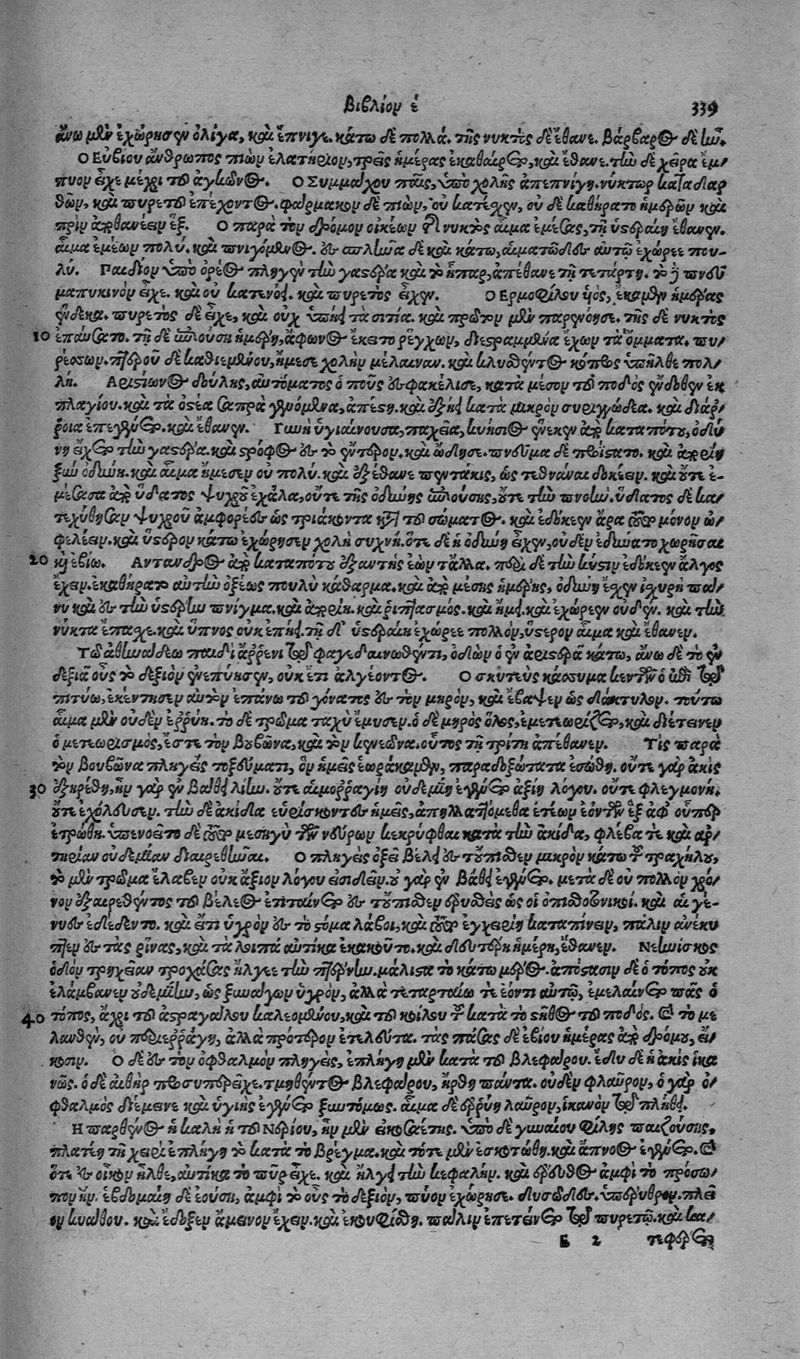 Βιβλίον έ 339
ἄνω μὲν ἐχώρησεν ὀλίγα, καὶ ἔπνιγε. κάτω δὲ πολλά. τῆς νυκτὸς δὲ ἔθανε. βάρβαρος δὲ ἦν.
Ο Εὐβίου ἄνθρωπος πιὼν ἐλατήριον, τρεῖς ἡμέρας ἐκαθαίρετο, καὶ ἔθανε. τὴν δὲ χεῖρα ἔμ-
πυον εἶχε μέχρι τοῦ ἀγκῶνος. Ο Συμμάχου παῖς, ὑπὸ χολῆς ἀπεπνίγη. νύκτωρ καταδαρ
θὼν, καὶ πυρετοῦ ἐπέχοντος. φάρμακον δὲ πιὼν, οὐ κατέχων, οὐ δὲ καθήρατο ἡμερῶν καὶ
πρὶν ἀποθανέειν ἕξ. Ο παρὰ τὸν δρόμον οἰκέων νυκτὸς αἷμα ἐμέσας, τῇ ὑστεραίῃ ἔθανεν.
αἷμα ἐμέων πολύ. καὶ πνιγόμενος. διὰ σπλῆνα δὲ καὶ κάτω, αἱματῶδες αὐτῷ ἐχώρεε που-
λύ. Παιδίον ὑπὸ ὀρέος πληγὲν τὴν γαστέρα καὶ τὸ ἧπαρ, ἀπέθανε τῇ τετάρτῃ. τὸ πνεῦ
μα πυκινὸν εἶχε. καὶ οὐ κατενόει. καὶ πυρετὸς εἶχεν. Ο Ερμοφίλου υἱὸς, ἔκαμνεν ἡμέρας
ἕνδεκα. πυρετὸς δὲ εἶχε, καὶ οὐχ ὑπῄει τὰ σιτία. καὶ πρῶτον μὲν παρενόησε. τῆς δὲ νυκτὸς
10 ἐπαύσατο. τῇ δὲ ἐπιούσῃ ἡμέρῃ, ἄφωνος ἔκειτο ῥέγχων, διεστραμμένα ἔχων τὰ ὄμματα. πυ-
ρέσσων. πτεροῦ δὲ καθιεμένου, ἤμεσε χολὴν μέλαιναν. καὶ κλυσθέντος κόπρος ὑπῆλθε πολ-
λή. Αριστίωνος δούλης, αὐτόματος ὁ ποῦς ἐσφακέλισε, κατὰ μέσον τοῦ ποδὸς ἔνδοθεν ἐκ
πλαγίου. καὶ τὰ ὀστέα σαπρὰ γενόμενα, ἀπέστη. καὶ ἐξῄει κατὰ μικρὸν συριγγώδεα. καὶ διάρ-
ροια ἐπεγένετο. καὶ ἔθανεν. Γυνὴ ὑγιαίνουσα, παχεῖα, κυήσιος ἕνεκεν ἀπὸ καταπότου, ὀδύ
νη εἴχετο τὴν γαστέρα. καὶ στρόφος ἐς τὸ ἔντερον. καὶ ᾤδησε. πνεῦμα δὲ προΐστατο. καὶ ἀπορίη
ξὺν ὀδύνῃ. καὶ αἷμα ἤμεσεν οὐ πολύ. καὶ ἐξέθανε πεντάκις, ὡς τεθνάναι δοκέειν. καὶ οὔτε ἐ-
μέσασα ἀπὸ ὕδατος ψυχροῦ ἐχάλα, οὔτε τῆς ὀδύνης ἐπιούσης, οὔτε τὴν πνοήν. ὕδατος δὲ κα-
τεχύθησαν ψυχροῦ ἀμφορέες ὡς τριάκοντα κατὰ τοῦ σώματος. καὶ ἐδόκεεν ἄρα τοῦτο μόνον ὠ-
φελέειν. καὶ ὕστερον κάτω ἐχώρησεν χολὴ συχνή. ὅτε δὲ ἡ ὀδύνη εἶχεν, οὐδὲν ἐδύνατο χωρῆσαι
20 καὶ ἐβίω. Αντανδρος ἀπὸ καταπότου ἐξάντης ἐὼν τἄλλα. περὶ δὲ τὴν κύστιν ἐδόκεεν ἄλγος
ἔχειν. ἐκαθήρατο αὐτὴν ὀξέως πουλὺ κάθαρμα. καὶ ἀπὸ μέσης ἡμέρης, ὀδύνη εἶχεν ἰσχυρὴ πάν-
νυ καὶ ἐς τὴν ὑστέρην πνίγμα. καὶ ἀπορίη. καὶ ῥιπτασμός. καὶ ἤμει. καὶ ἐχώρεεν οὐδέν. καὶ τὴν
νύκτα ἔπασχε. καὶ ὕπνος οὐκ ἐπῄει. τῇ δ' ὑστεραίῃ ἐχώρεε πολλόν, ὕστερον αἷμα καὶ ἔθανεν.
Τῷ ἀθηναδέω παιδὶ ἄρρενι τῷ φαγεδαινωθέντι, ὀδὼν ὁ ἐν ἀριστερᾷ κάτω, ἄνω δὲ τὸ ἐν
δεξιᾷ οὖς τὸ δεξιὸν ἐνεπύησεν, οὐκέτι ἀλγέοντος. Ο σκυτεὺς κάσσυμα κεντῶν ὁ ἐπὶ τῷ
πιτύῳ, ἐκέντησεν αὑτὸν ἐπάνω τοῦ γόνατος ἐς τὸν μηρὸν, καὶ ἔβαψεν ὡς δάκτυλον. τούτῳ
αἷμα μὲν οὐδὲν ἐρρύη. τὸ δὲ τρῶμα ταχὺ ἔμυσεν. ὁ δὲ μηρὸς ὅλος, ἐμετεωρίζετο, καὶ διέτεινεν
ὁ μετεωρισμὸς, ἔς τε τὸν βουβῶνα, καὶ τὸν κενεῶνα. οὗτος τῇ τρίτῃ ἀπέθανεν. Τὶς παρὰ
τὸν βουβῶνα πληγεὶς τοξεύματι, ὃν ἡμεῖς ἑωράκαμεν, παραδοξώτατα ἐσώθη. οὔτε γὰρ ἀκὶς
30 ἐξῃρέθη, ἦν γὰρ ἐν βαθεῖ λίην. οὔτε αἱμορραγίη οὐδεμίη ἐγένετο ἀξίη λόγου. οὔτε φλεγμονή.
οὔτε ἐχώλευσεν. τὴν δὲ ἀκίδα εὑρίσκοντες ἡμεῖς, ἀπηλλασσόμεθα ἐτέων ἐόντων ἓξ ἀφ' οὗπερ
ἐτρώθη. ὑπενοεῖτο δὲ τοῦτο μεσηγὺ τῶν νεύρων κεκρύφθαι κατὰ τὴν ἀκίδα, φλέβα τε καὶ ἀρ-
τηρίαν οὐδεμίαν διαιρεθῆναι. Ο πληγεὶς ὀξεῖ βέλει ἐς τοὔπισθεν μικρὸν κάτω τοῦ τραχήλου,
τὸ μὲν τρῶμα ἔλαβεν οὐκ ἄξιον λόγου ἐσιδέειν. οὐ γὰρ ἐν βάθει ἐγένετο. μετὰ δὲ οὐ πολλὸν χρό-
νον ἐξαιρεθέντος τοῦ βέλεος ἐπιταίνετο ἐς τοὔπισθεν ἐρυσθεὶς ὡς οἱ ὀπισθοτονικοί. καὶ αἱ γέ-
νυες ἐδέδεντο. καὶ εἴ τι ὑγρὸν ἐς τὸ στόμα λάβοι, καὶ τοῦτο ἐγχειρέῃ καταπίνειν, πάλιν ἀνέκυ
πτεν ἐς τὰς ῥῖνας, καὶ τὰ λοιπὰ αὐτίκα ἐκακοῦτο. καὶ δευτέρῃ ἡμέρῃ, ἔθανεν. Νεηνίσκος
ὁδὸν τρηχεῖαν τροχάσας ἤλγεε τὴν πτέρνην. μάλιστα τὸ κάτω μέρος. ἀπόστασιν δὲ ὁ τόπος οὐκ
ἐλάμβανεν οὐδεμίην, ὡς ξυνάγων ὑγρὸν, ἀλλὰ τεταρταίῳ τε ἐόντι αὐτῷ, ἐμελαίνετο πᾶς ὁ
40 τόπος, ἄχρι τοῦ ἀστραγάλου καλεομένου, καὶ τοῦ κοίλου τοῦ κατὰ τὸ στῆθος τοῦ ποδός. καὶ τὸ με
λανθὲν, οὐ περιερράγη, ἀλλὰ πρότερον ἐτελεύτα. τὰς πάσας δὲ ἐβίου ἡμέρας ἀπὸ δρόμου, εἴ-
κοσιν. Ο δὲ ἐς τὸν ὀφθαλμὸν πληγεὶς, ἐπλήγη μὲν κατὰ τοῦ βλεφάρου. ἔδυ δὲ ἡ ἀκὶς ἱκα
νῶς. ὁ δὲ ἀθὴρ προσυπερεῖχε. τμηθέντος βλεφάρου, ἤρθη πάντα. οὐδὲν φλαῦρον, ὁ γὰρ ὀ-
φθαλμὸς διέμεινε καὶ ὑγιὴς ἐγένετο ξυντόμως. αἷμα δὲ ἐρρύη λαῦρον, ἱκανὸν τῷ πλήθει.
Η παρθένος ἡ καλὴ ἡ τοῦ Νερίου, ἦν μὲν εἰκοσαέτης. ὑπὸ δὲ γυναίου φίλης παιζούσης,
πλατέῃ τῇ χειρὶ ἐπλήγη τὸ κατὰ τὸ βρέγμα. καὶ τότε μὲν ἐσκοτώθη. καὶ ἄπνοος ἐγένετο. καὶ
ὅτε ἐς οἶκον ἦλθε, αὐτίκα τὸ πῦρ εἶχε. καὶ ἤλγει τὴν κεφαλήν. καὶ ἔρευθος ἀμφὶ τὸ πρόσω-
πον ἦν. ἑβδομαίῃ δὲ ἐούσῃ, ἀμφὶ τὸ οὖς τὸ δεξιὸν, πύον ἐχώρησε. δυσῶδες. ὑπέρυθρον. πλεῖ
ον κυάθου. καὶ ἔδοξεν ἄμεινον ἔχειν. καὶ ἐκουφίσθη. πάλιν ἐπετείνετο τῷ πυρετῷ. καὶ κα-
2 τεφέρετο